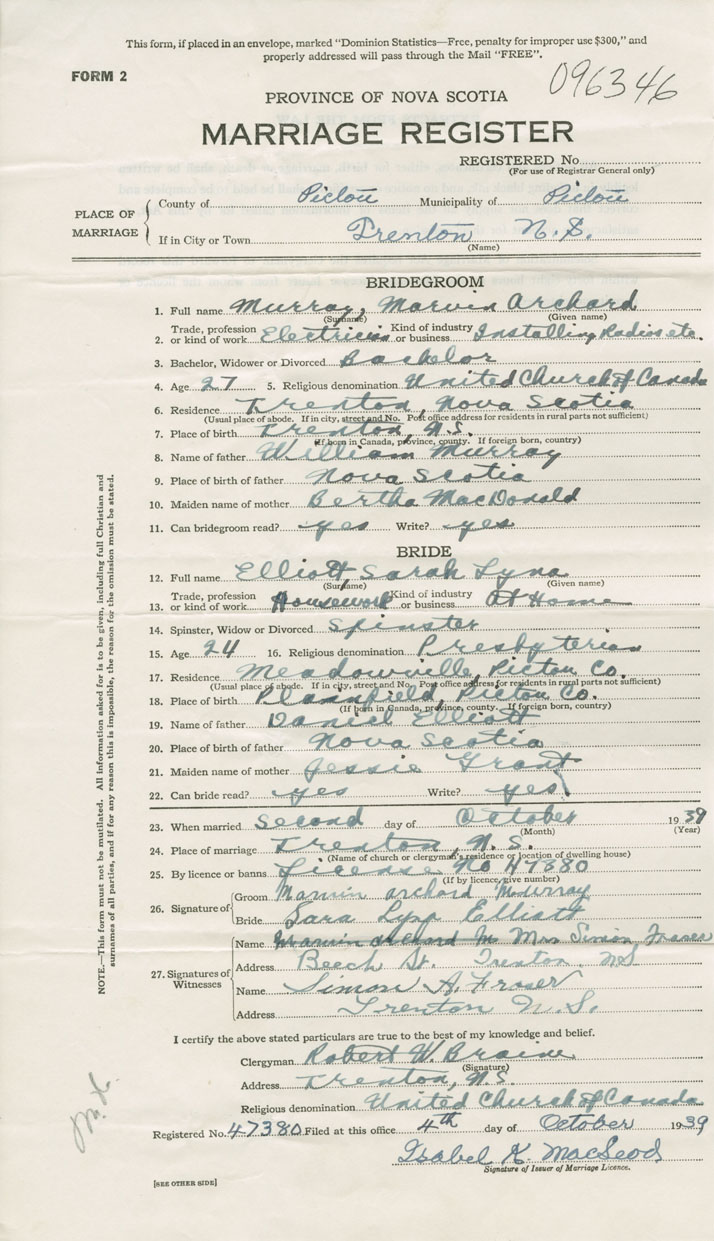 This form, if placed in an envelope, marked "Dominion Statistics—Free, penalty for improper use $300," and
properly addressed will pass through the Mail "FREE".
FORM 2
096346
PROVINCE OF NOVA SCOTIA
MARRIAGE REGISTER
REGISTERED No.
(For use of Registrar General only)
PLACE OF MARRIAGE
County of Pictou Municipality of Pictou
If in City or Town Trenton N.S.
(Name)
BRIDEGROOM
1. Full name Murray, Marvin Archard
(Surname) (Given name)
2. Trade, profession or kind of work Electrician Kind of industry or business Installing Radios etc.
3. Bachelor, Widower or Divorced Bachelor
4. Age 27 5. Religious denomination United Church of Canada
6. Residence Trenton, Nova Scotia
(Usual place of abode. If in city, street and No. Post office address for residents in rural parts not sufficient)
7. Place of birth Trenton, N.S.
(If born in Canada, province, county. If foreign born, country)
8. Name of father William Murray
9. Place of birth of father Nova Scotia
10. Maiden name of mother Bertha MacDonald
11. Can bridegroom read? yes Write? yes
BRIDE
12. Full name Elliott, Sarah Lyna
(Surname) (Given name)
13. Trade, profession or kind of work Housework Kind of industry or business At Home
14. Spinster, Widow or Divorced Spinster
15. Age 24 16. Religious denomination Presbyterian
17. Residence Meadowville, Pictou Co.
(Usual place of abode. If in city, street and No. Post office address for residents in rural parts not sufficient)
18. Place of birth Plainfield, Pictou Co.
(If born in Canada, province, county. If foreign born, country)
19. Name of father Daniel Elliott
20. Place of birth of father Nova Scotia
21. Maiden name of mother Jessie Grant
22. Can bride read? yes Write? yes.
23. When married Second day of October 1939
(Month) (Year)
24. Place of marriage Trenton, N.S.
(Name of church or clergyman's residence or location of dwelling house)
25. By licence or banns License No 47380
(If by licence, give number)
26. Signature of
Groom Marvin Archard Murray
Bride Sara Lyna Elliott
27. Signatures of Witnesses
Name Marvin Archard M Mrs Simon Fraser
Address Beech St. Trenton, NS
Name Simon A. Fraser
Address Trenton N.S.
I certify the above stated particulars are true to the best of my knowledge and belief.
Clergyman Robert W. Braine
(Signature)
Address Trenton, N.S.
Religious denomination United Church of Canada
Registered No. 47380 Filed at this office 4th day of October 1939
Isabel K MacLeod
Signature of Issuer of Marriage Licence.
[SEE OTHER SIDE]
NOTE.—This form must not be mutilated. All information asked for is to be given, including full Christian and
surnames of all parties, and if for any reason this is impossible, the reason for the omission must be stated.